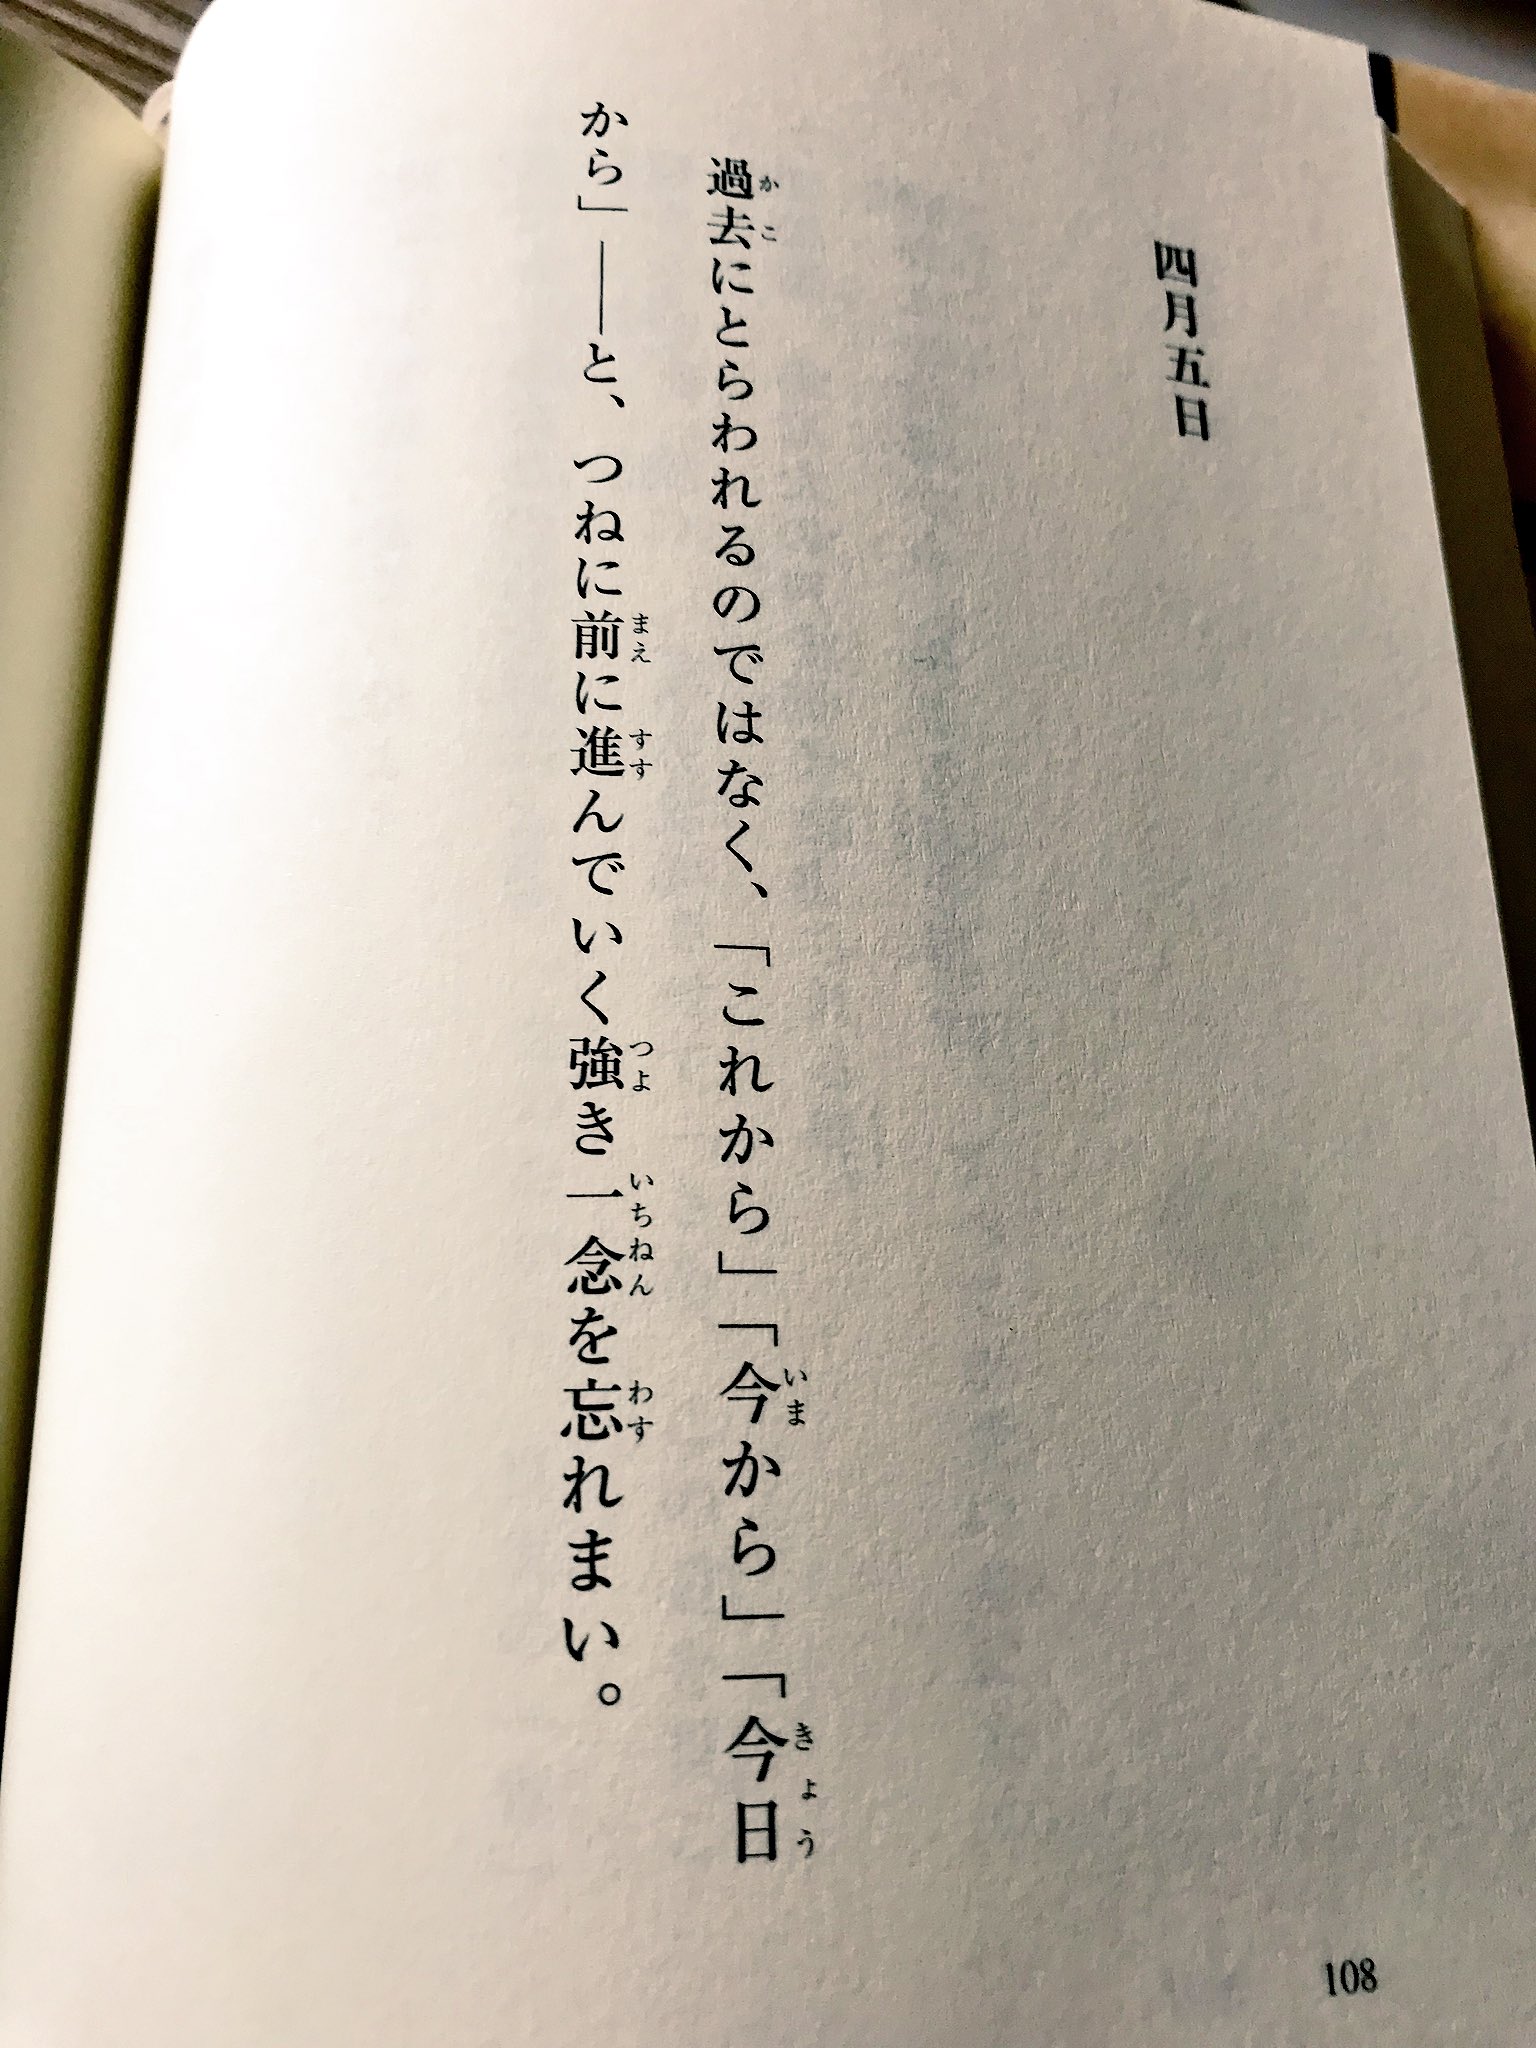 四月五日
過去にとらわれるのではなく、「これから」「今から」「今日
から」――と、つねに前に進んでいく強き一念を忘れまい。
108